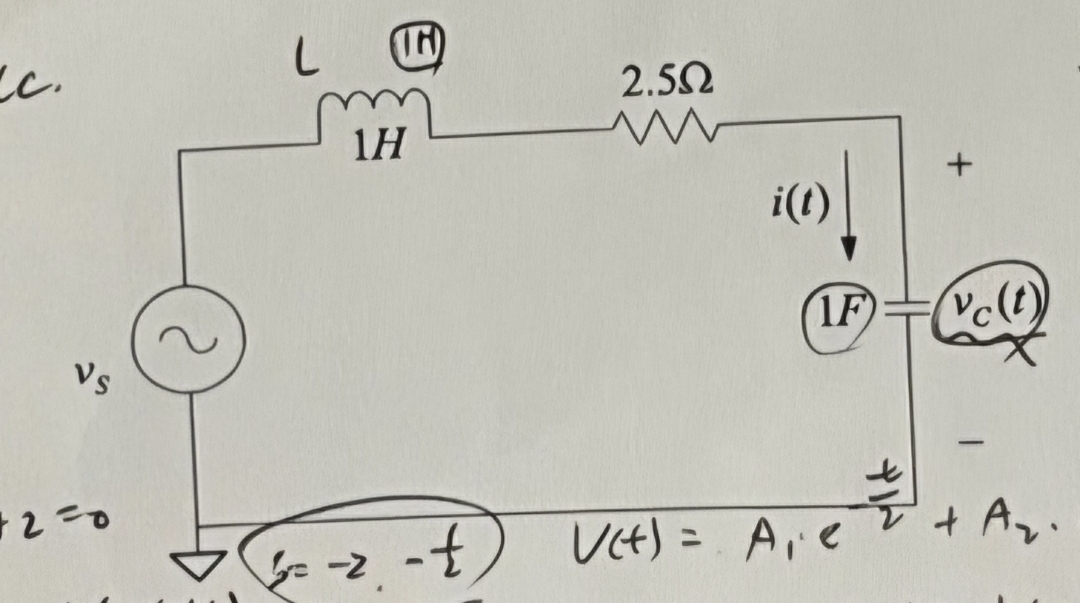 L 1H
2.5Ω
1H
+
i(t)
1F
v_C(t)
v_S
−
+ 2 = 0
s = -2, -1/2
V(t) = A₁ e^{-t/2} + A₂